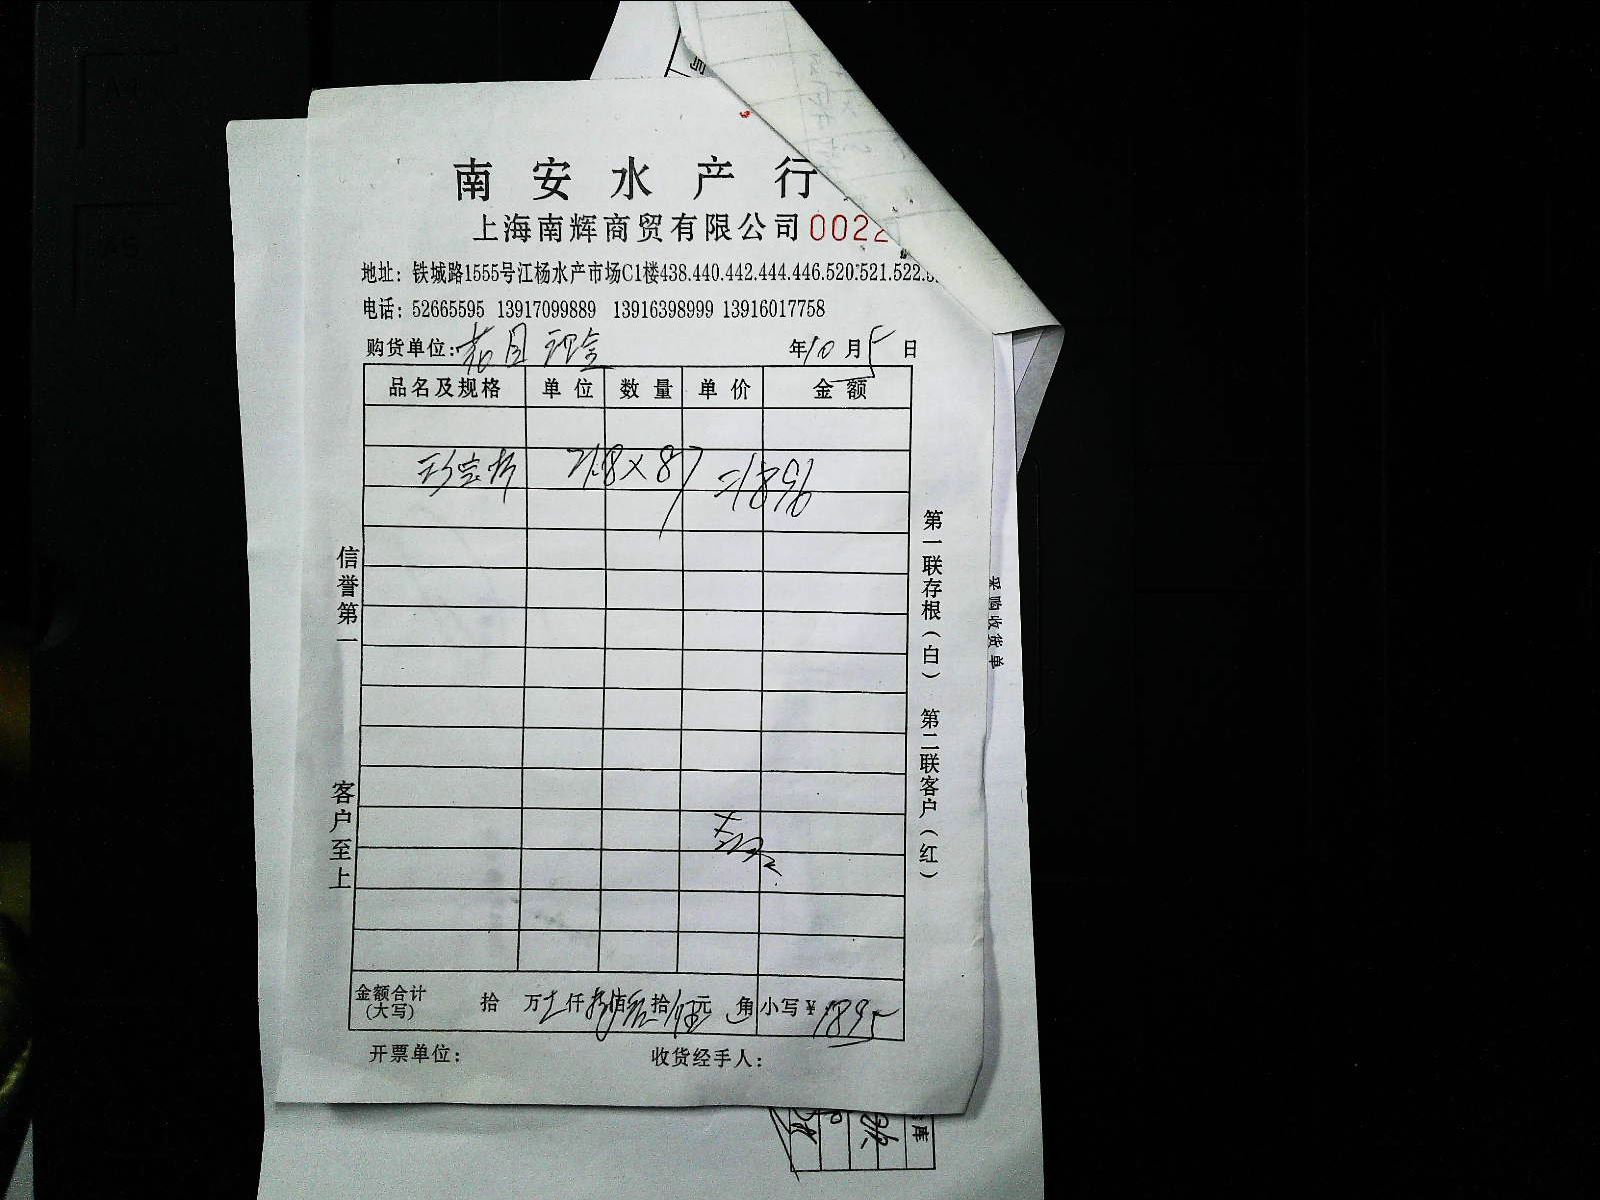 南安水产行
上海南辉商贸有限公司 0022
地址：铁城路1555号江杨水产市场C1楼438.440.442.444.446.520.521.522.5
电话：52665595 13917099889 13916398999 13916017758
购货单位： 现金 年10月5日
品名及规格 单位 数量 单价 金额
21.8×87 =1896
信誉第一
客户至上
第一联存根（白） 第二联客户（红）
采购收货单
金额合计
(大写) 拾 万 仟 佰 拾 伍元 角 小写￥1895
开票单位： 收货经手人：
库